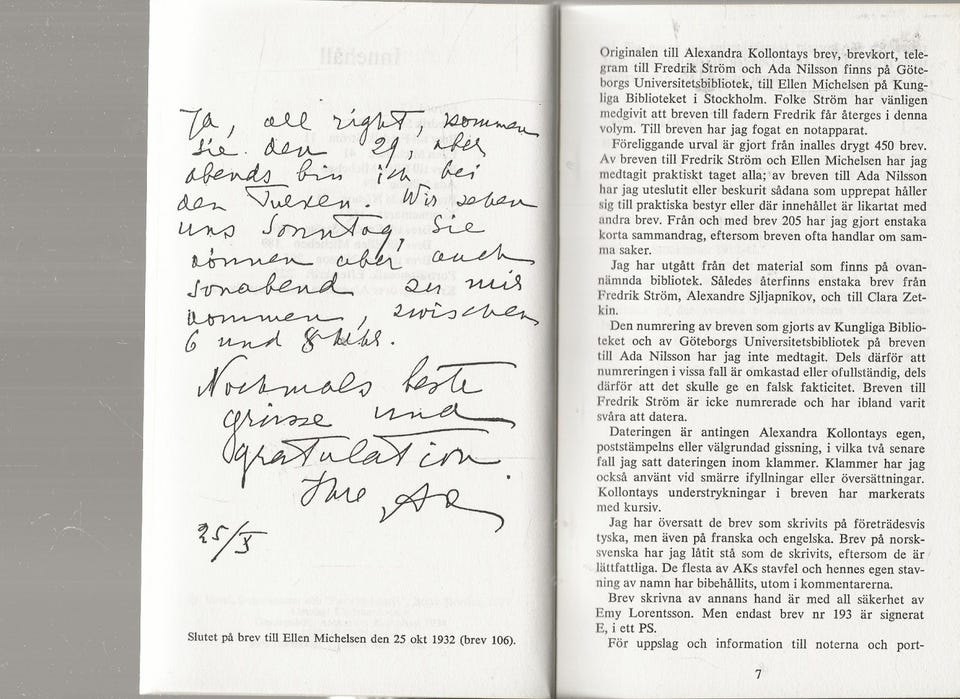 Ja, all right, kommen
Sie den 29, aber
abends bin ich bei
den Türken. Wir sehen
uns Sonntag, Sie
können aber auch
Sonabend zu mir
kommen, zwischen
6 und 8
Nochmals beste
grüsse und
gratulation.
Ihre AK
25/X
Slutet på brev till Ellen Michelsen den 25 okt 1932 (brev 106).
Originalen till Alexandra Kollontays brev, brevkort, tele-
gram till Fredrik Ström och Ada Nilsson finns på Göte-
borgs Universitetsbibliotek, till Ellen Michelsen på Kung-
liga Biblioteket i Stockholm. Folke Ström har vänligen
medgivit att breven till fadern Fredrik får återges i denna
volym. Till breven har jag fogat en notapparat.
Föreliggande urval är gjort från inalles drygt 450 brev.
Av breven till Fredrik Ström och Ellen Michelsen har jag
medtagit praktiskt taget alla; av breven till Ada Nilsson
har jag uteslutit eller beskurit sådana som upprepat håller
sig till praktiska bestyr eller där innehållet är likartat med
andra brev. Från och med brev 205 har jag gjort enstaka
korta sammandrag, eftersom breven ofta handlar om sam-
ma saker.
Jag har utgått från det material som finns på ovan-
nämnda bibliotek. Således återfinns enstaka brev från
Fredrik Ström, Alexandre Sjljapnikov, och till Clara Zet-
kin.
Den numrering av breven som gjorts av Kungliga Biblio-
teket och av Göteborgs Universitetsbibliotek på breven
till Ada Nilsson har jag inte medtagit. Dels därför att
numreringen i vissa fall är omkastad eller ofullständig, dels
därför att det skulle ge en falsk fakticitet. Breven till
Fredrik Ström är icke numrerade och har ibland varit
svåra att datera.
Dateringen är antingen Alexandra Kollontays egen,
poststämpelns eller välgrundad gissning, i vilka två senare
fall jag satt dateringen inom klammer. Klammer har jag
också använt vid smärre ifyllningar eller översättningar.
Kollontays understrykningar i breven har markerats
med kursiv.
Jag har översatt de brev som skrivits på företrädesvis
tyska, men även på franska och engelska. Brev på norsk-
svenska har jag låtit stå som de skrivits, eftersom de är
lättfattliga. De flesta av AKs stavfel och hennes egen stav-
ning av namn har bibehållits, utom i kommentarerna.
Brev skrivna av annans hand är med all säkerhet av
Emy Lorentsson. Men endast brev nr 193 är signerat
E, i ett PS.
För uppslag och information till noterna och port-
7